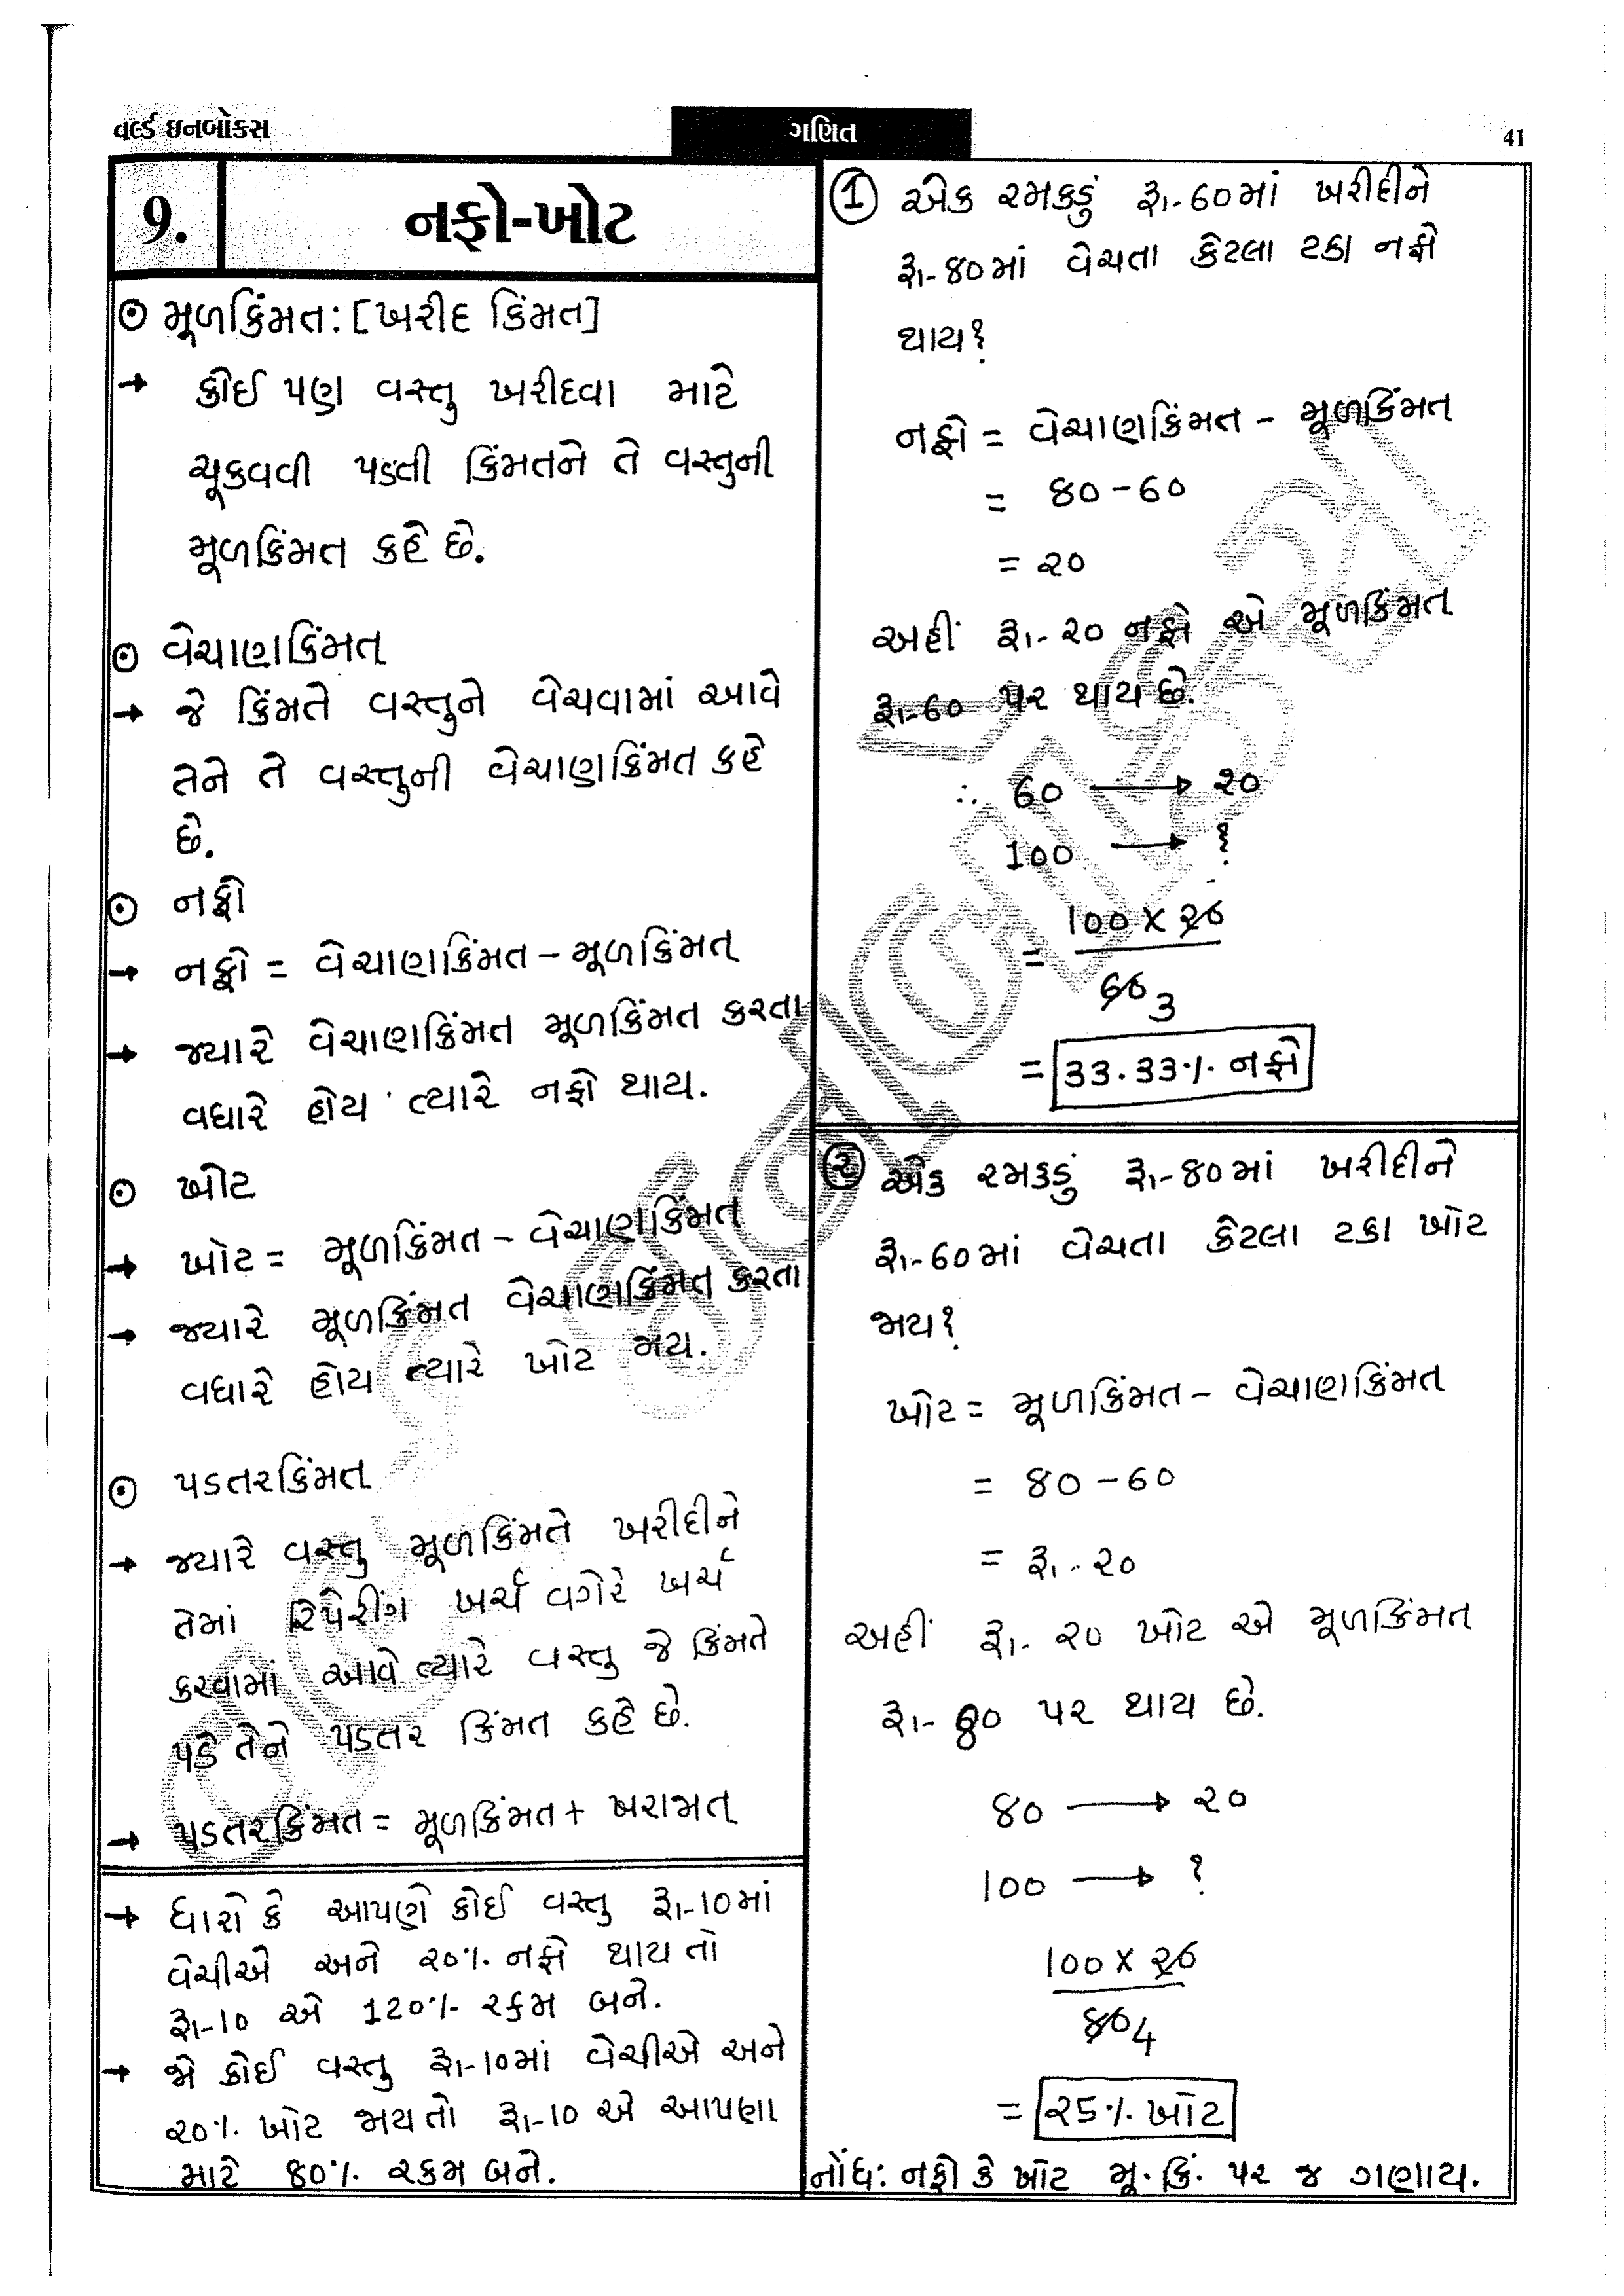 વર્લ્ડ ઇનબોક્સ
ગણિત
41
9.
નફો-ખોટ
⊙ મૂળકિંમત: [ખરીદ કિંમત]
→ કોઈ પણ વસ્તુ ખરીદવા માટે
ચૂકવવી પડતી કિંમતને તે વસ્તુની
મૂળકિંમત કહે છે.
⊙ વેચાણકિંમત
→ જે કિંમતે વસ્તુને વેચવામાં આવે
તેને તે વસ્તુની વેચાણકિંમત કહે
છે.
⊙ નફો
→ નફો = વેચાણકિંમત - મૂળકિંમત
→ જ્યારે વેચાણકિંમત મૂળકિંમત કરતા
વધારે હોય ત્યારે નફો થાય.
⊙ ખોટ
→ ખોટ = મૂળકિંમત - વેચાણકિંમત
→ જ્યારે મૂળકિંમત વેચાણકિંમત કરતા
વધારે હોય ત્યારે ખોટ જાય.
⊙ પડતરકિંમત
→ જ્યારે વસ્તુ મૂળકિંમતે ખરીદીને
તેમાં રિપેરીંગ ખર્ચ વગેરે ખર્ચ
કરવામાં આવે ત્યારે વસ્તુ જે કિંમતે
પડે તેને પડતર કિંમત કહે છે.
→ પડતરકિંમત = મૂળકિંમત + ખરાજાત
→ ધારો કે આપણે કોઈ વસ્તુ રૂા-10માં
વેચીએ અને ૨0% નફો થાય તો
રૂા-10 એ 120% રકમ બને.
→ જો કોઈ વસ્તુ રૂા-10માં વેચીએ અને
૨0% ખોટ જાય તો રૂા-10 એ આપણા
માટે ૪0% રકમ બને.
① એક રમકડું રૂા-60માં ખરીદીને
રૂા-૪0માં વેચતા કેટલા ટકા નફો
થાય?
નફો = વેચાણકિંમત - મૂળકિંમત
= ૪0 - 60
= ૨0
અહીં રૂા-૨0 નફો એ મૂળકિંમત
રૂા-60 પર થાય છે.
∴ 60 → ૨0
100 → ?
= 100 × ૨0
60 3
= 33.33% નફો
② એક રમકડું રૂા-૪0માં ખરીદીને
રૂા-60માં વેચતા કેટલા ટકા ખોટ
જાય?
ખોટ = મૂળકિંમત - વેચાણકિંમત
= ૪0 - 60
= રૂા-૨0
અહીં રૂા-૨0 ખોટ એ મૂળકિંમત
રૂા-80 પર થાય છે.
80 → ૨0
100 → ?
100 × ૨0
80 4
= ૨5% ખોટ
નોંધ: નફો કે ખોટ મૂ.કિં. પર જ ગણાય.